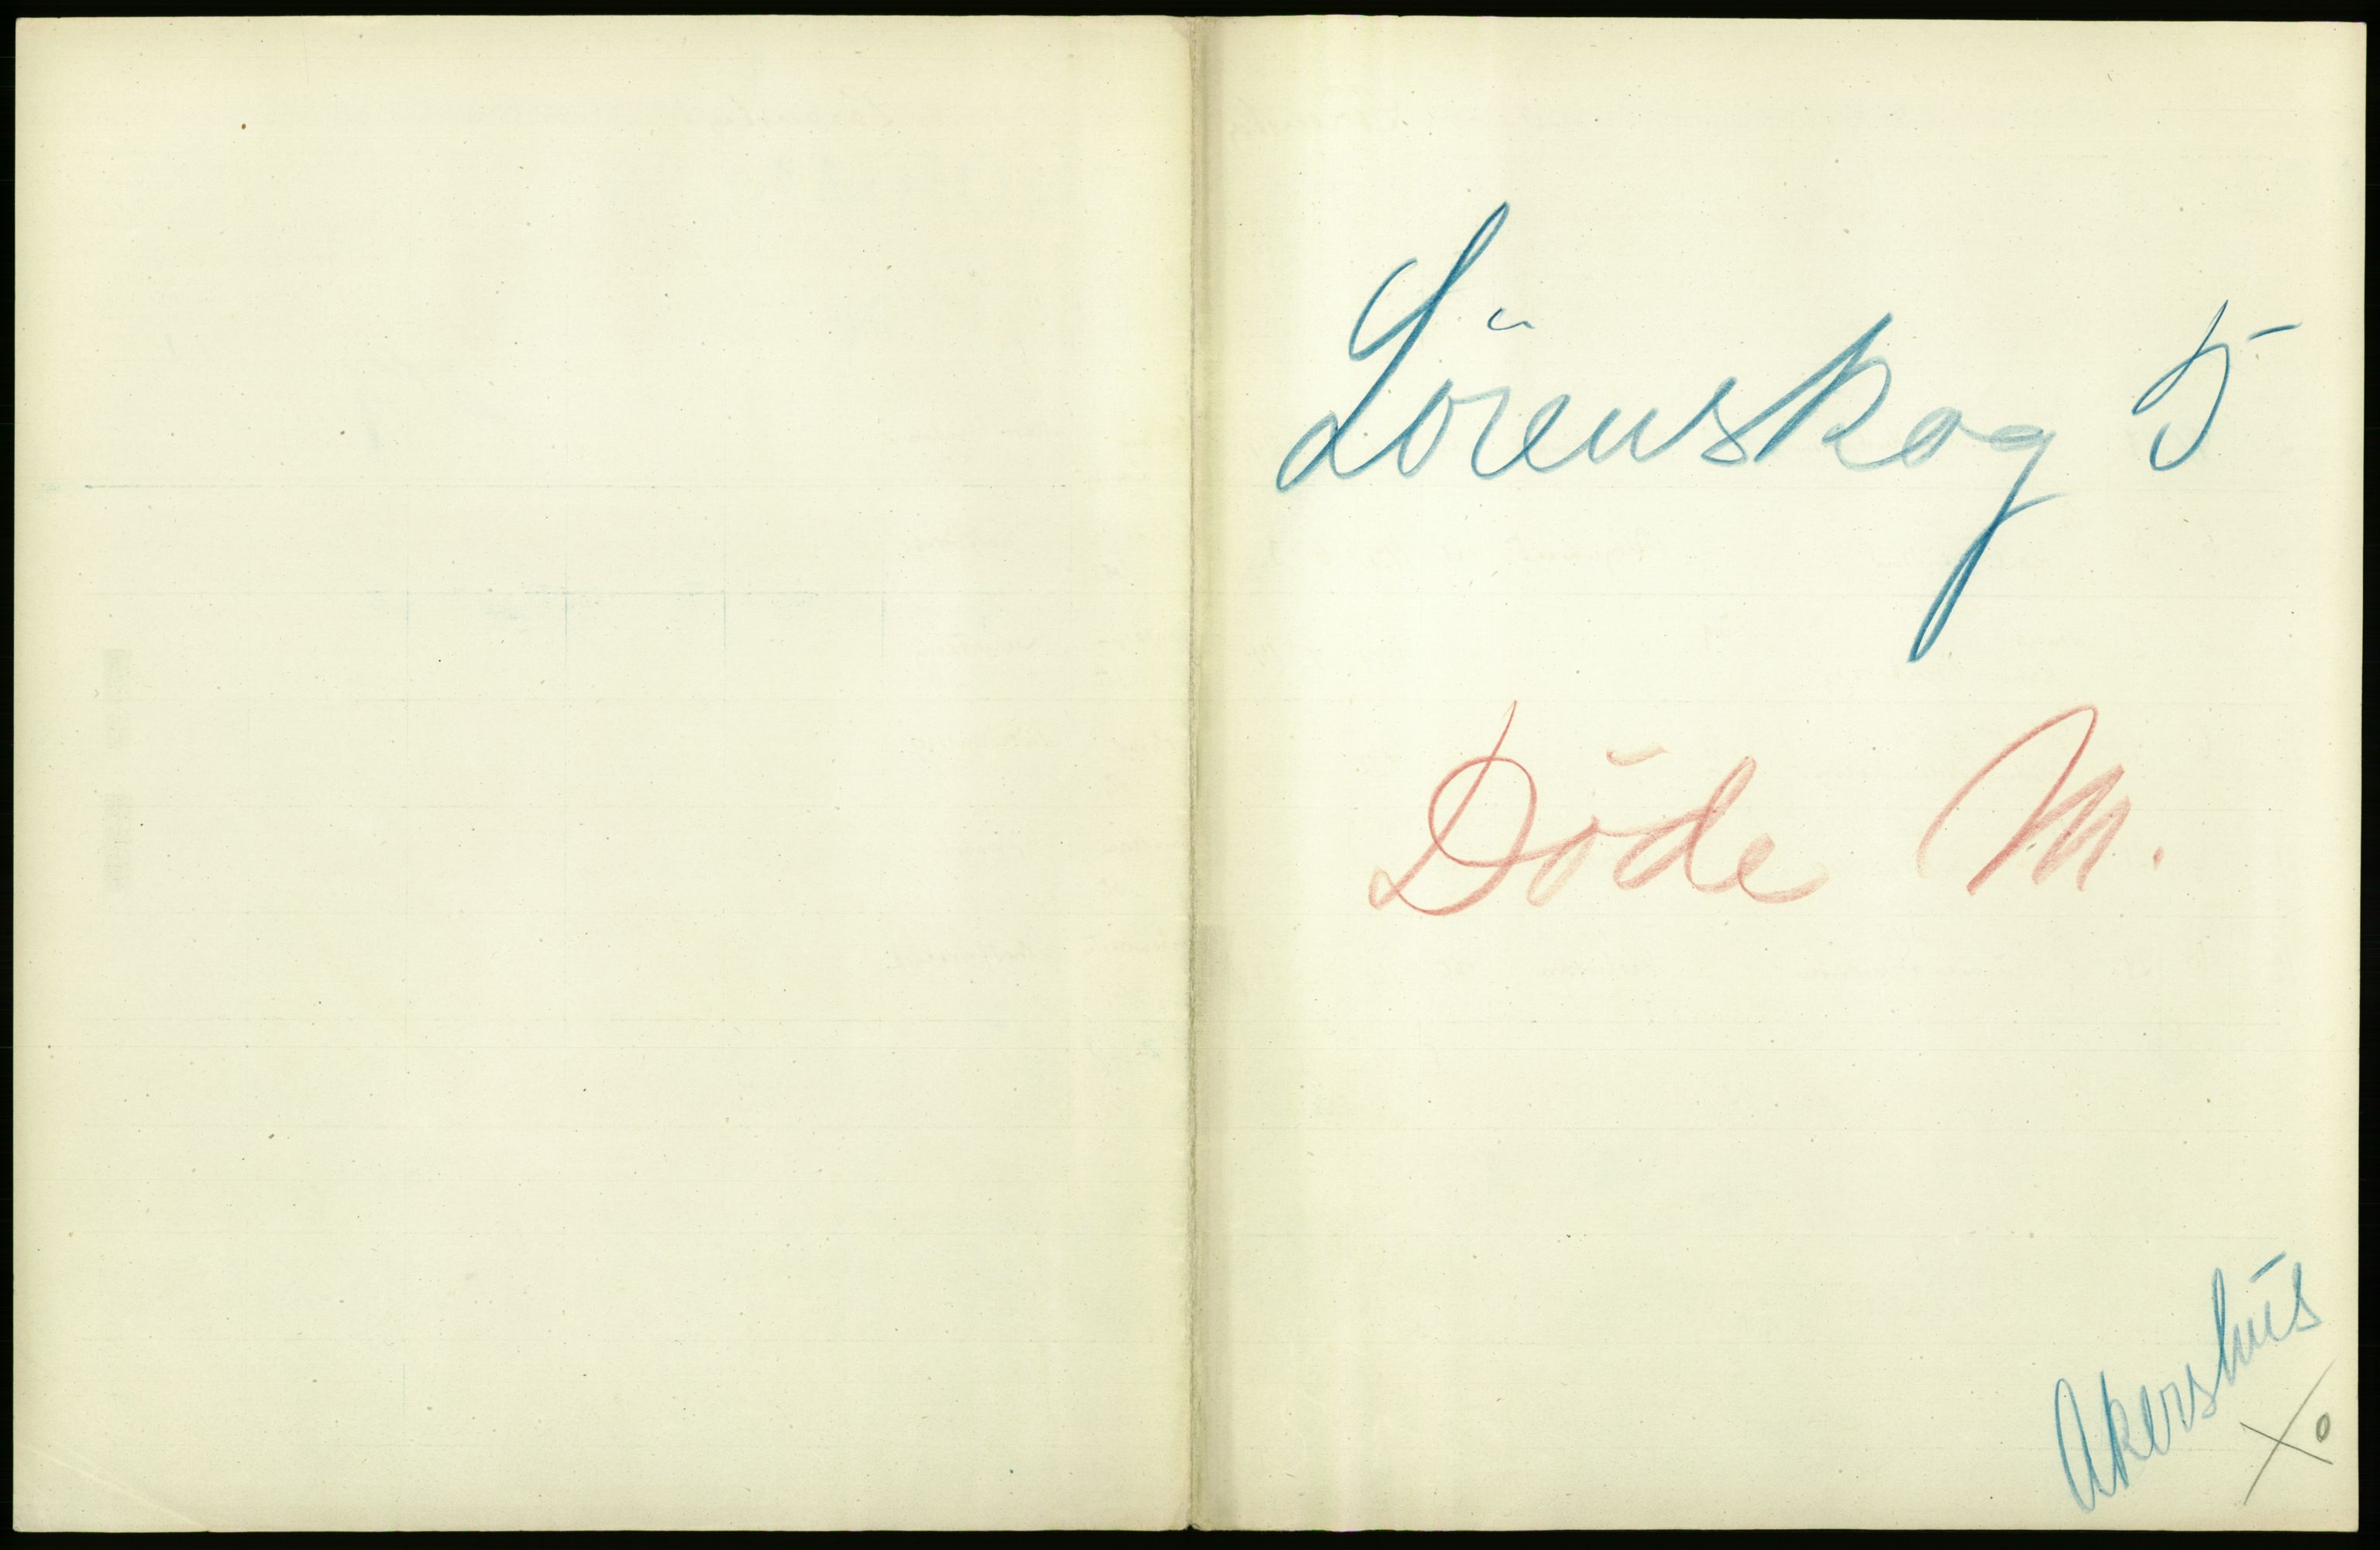 Lörenskog 5
Döde M.
Akershus
X 0